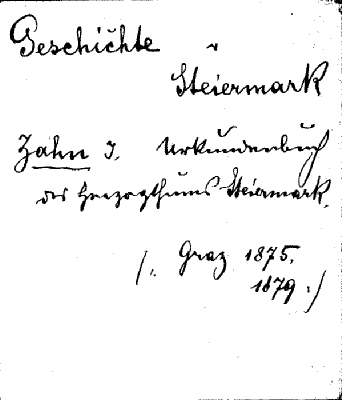 Geschichte
Steiermark
Zahn J. Urkundenbuch
des Herzogthums Steiermark.
/. Graz 1875.
1879 ./